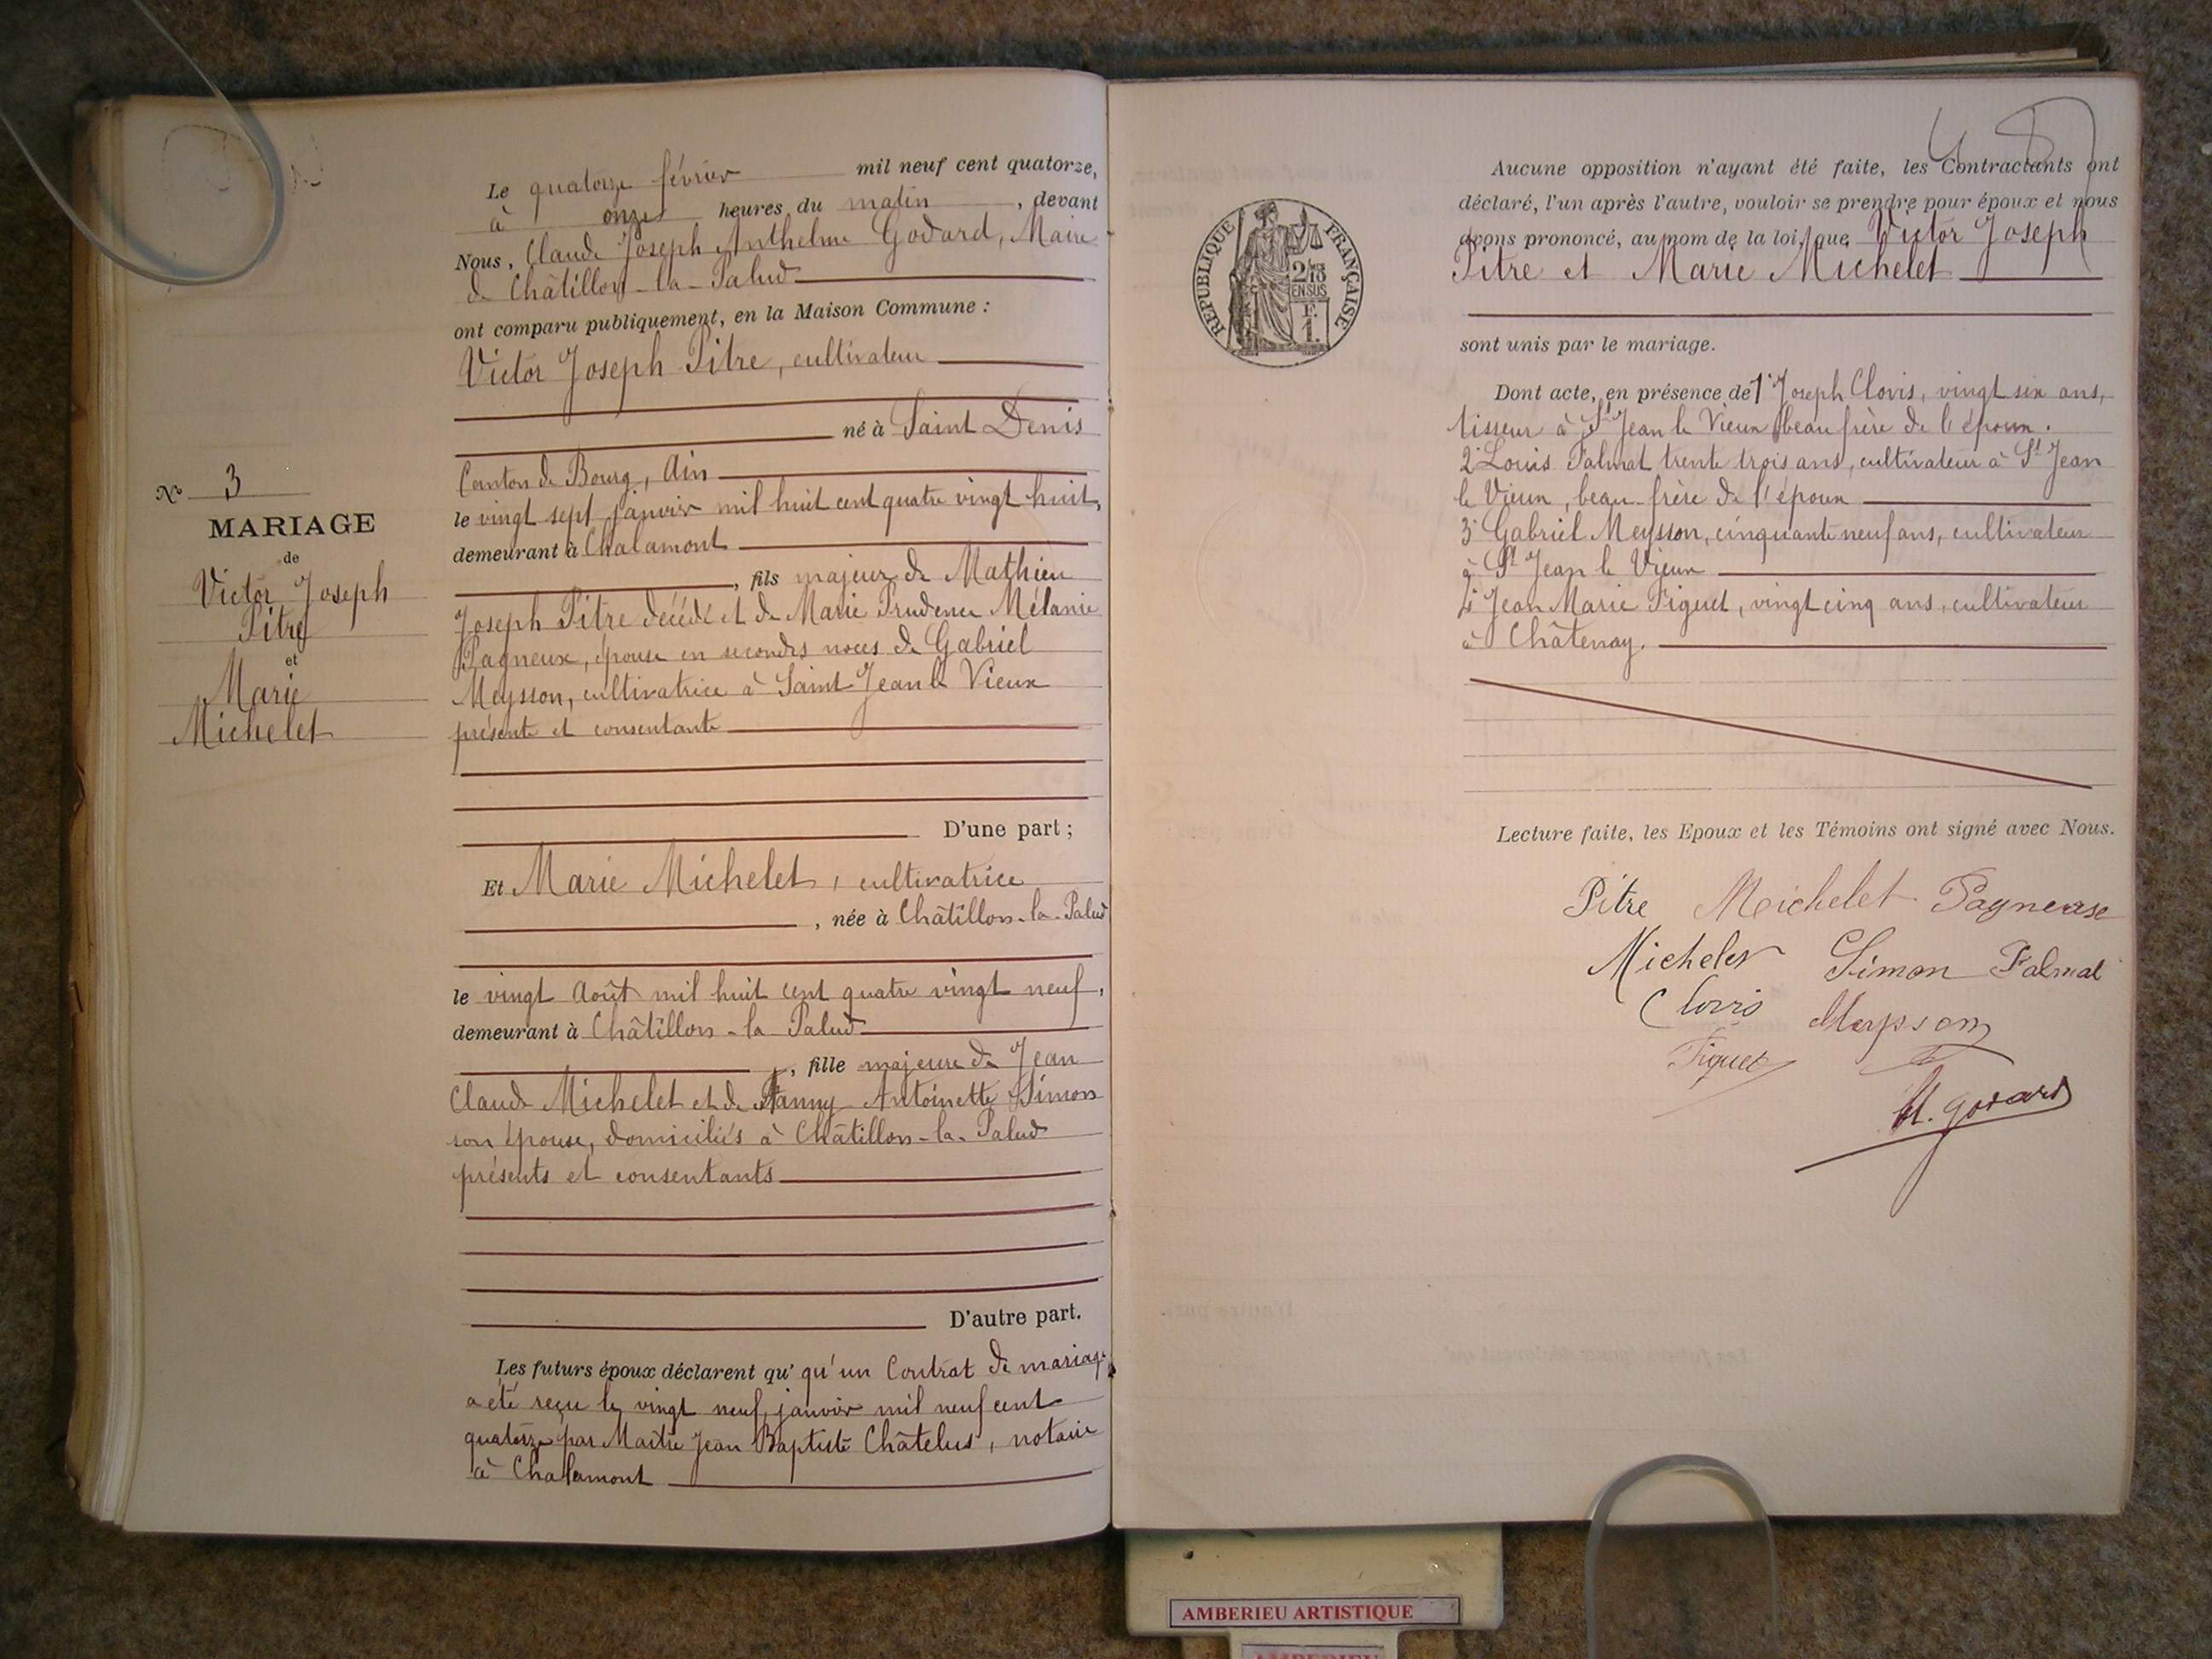 N° 3
MARIAGE
de
Victor Joseph
Pitre
et
Marie
Michelet
Le quatorze février mil neuf cent quatorze,
à onze heures du matin, devant
Nous, Claude Joseph Anthelme Godard, Maire
de Châtillon-la-Palud
ont comparu publiquement, en la Maison Commune :
Victor Joseph Pitre, cultivateur
né à Saint Denis
Canton de Bourg, Ain
le vingt sept janvier mil huit cent quatre vingt huit,
demeurant à Chalamont
, fils majeur de Mathieu
Joseph Pitre décédé et de Marie Prudence Mélanie
Pagneux, épouse en secondes noces de Gabriel
Meysson, cultivatrice à Saint Jean le Vieux
présente et consentante
D'une part ;
Et Marie Michelet, cultivatrice
, née à Châtillon-la-Palud
le vingt Août mil huit cent quatre vingt neuf,
demeurant à Châtillon-la-Palud
, fille majeure de Jean
Claude Michelet et de Fanny Antoinette Simon
son épouse, domiciliés à Châtillon-la-Palud
présents et consentants
D'autre part.
Les futurs époux déclarent qu' qu'un Contrat de mariage
a été reçu le vingt neuf janvier mil neuf cent
quatorze par Maître Jean Baptiste Châtelus, notaire
à Chalamont
REPUBLIQUE FRANÇAISE
2/10
EN SUS
F.
1.
Aucune opposition n'ayant été faite, les Contractants ont
déclaré, l'un après l'autre, vouloir se prendre pour époux et nous
avons prononcé, au nom de la loi, que Victor Joseph
Pitre et Marie Michelet
sont unis par le mariage.
Dont acte, en présence de 1° Joseph Clovis, vingt six ans,
tisseur à St Jean le Vieux beau frère de l'époux.
2° Louis Falmat trente trois ans, cultivateur à St Jean
le Vieux, beau-frère de l'époux
3° Gabriel Meysson, cinquante neuf ans, cultivateur
à St Jean le Vieux
4° Jean Marie Figuet, vingt cinq ans, cultivateur
à Châtenay.
Lecture faite, les Epoux et les Témoins ont signé avec Nous.
Pitre Michelet Pagneuse
Michelet Simon Falmat
Clovis Meysson
Figuet
Godard
AMBERIEU ARTISTIQUE
AMBERIEU